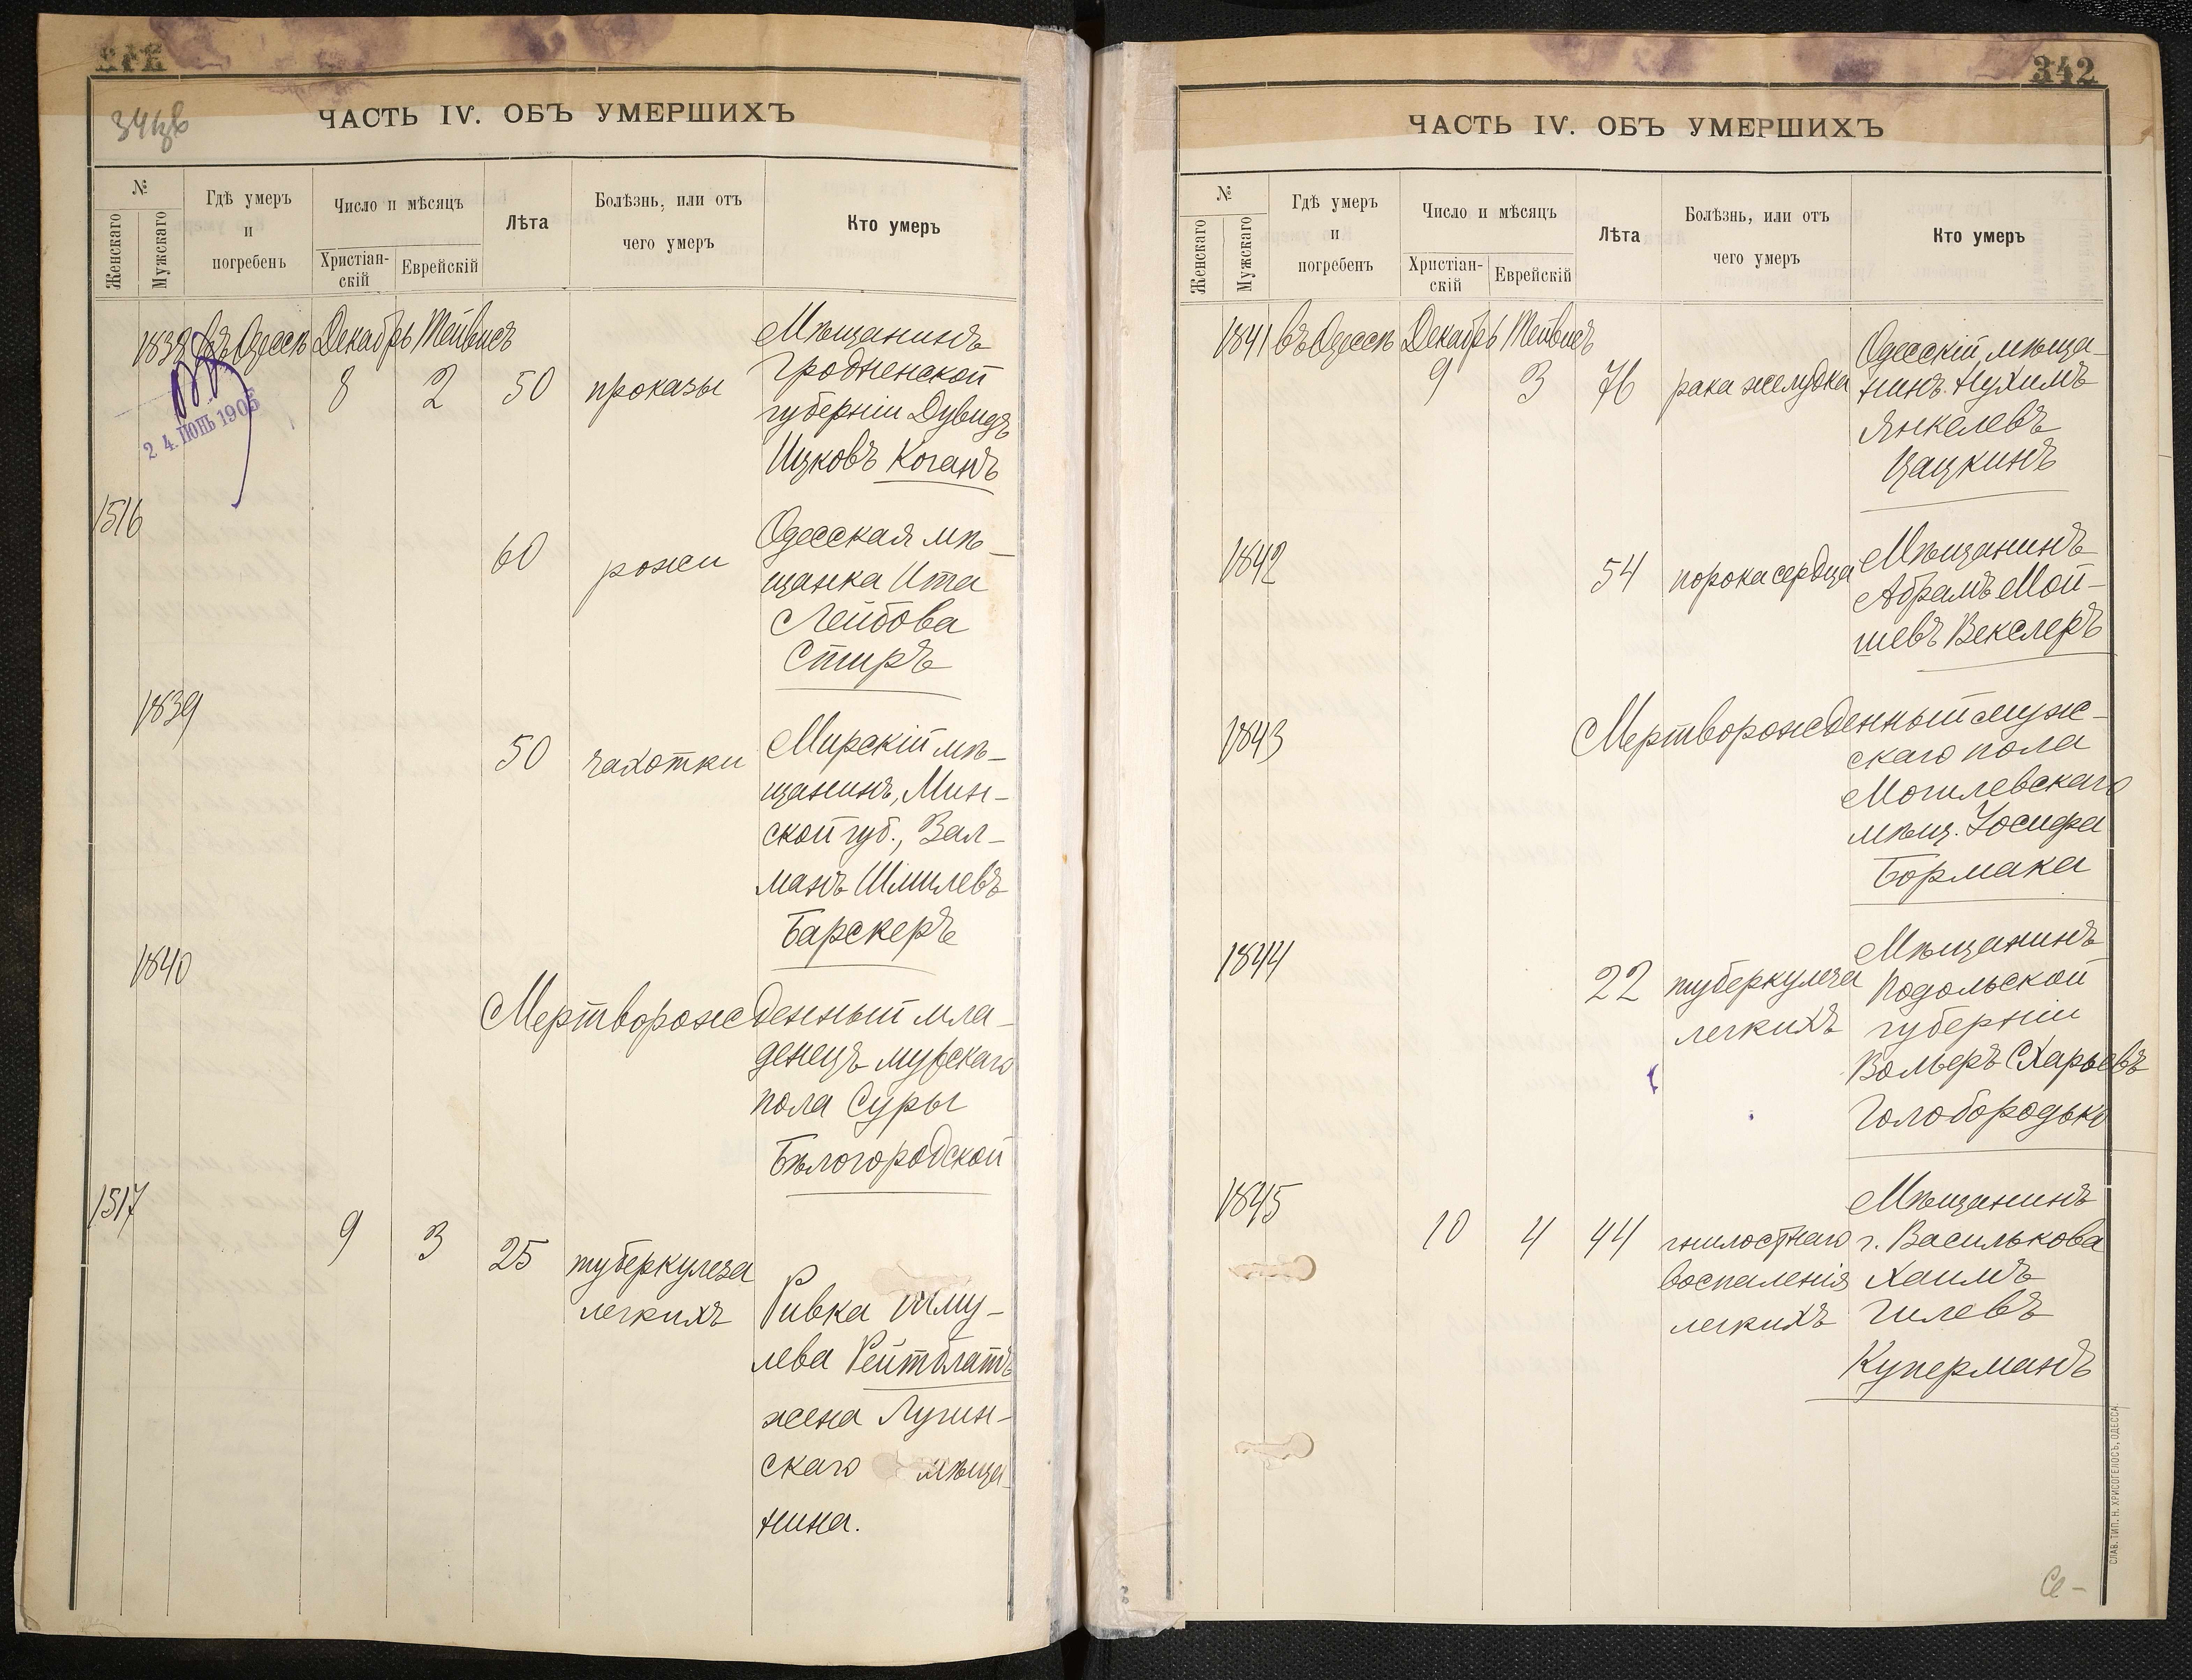 ЧАСТЬ IV. ОБЪ УМЕРШИХЪ
№
Женскаго
Мужскаго
Гдѣ умеръ
и
погребенъ
Число и мѣсяцъ
Христіан-
скій
Еврейскій
Лѣта
Болѣзнь, или отъ
чего умеръ
Кто умеръ
1838 въ Одессѣ Декабрь Тейвисъ
8 2 50 проказы
Мѣщанинъ
Гродненской
губерніи Дувидъ
Ицковъ Коганъ
24. ІЮНЬ 1905
1516
60 рожи
Одесская мѣ-
щанка Ита
Лейбова
Стиръ
1839
50 чахотки
Мирскій мѣ-
щанинъ, Мин-
ской губ., Зал-
манъ Шмилевъ
Барскеръ
1840
Мертворожденный мла-
денецъ мужскаго
пола Суры
Бѣлогородской
1517
9 3 25 туберкулеза
легкихъ
Ривка Шму-
лева Рейтблатъ
жена Лугин-
скаго мѣща-
нина.
342
ЧАСТЬ IV. ОБЪ УМЕРШИХЪ
№
Женскаго
Мужскаго
Гдѣ умеръ
и
погребенъ
Число и мѣсяцъ
Христіан-
скій
Еврейскій
Лѣта
Болѣзнь, или отъ
чего умеръ
Кто умеръ
1841 въ Одессѣ Декабрь Тейвисъ
9 3 76 рака желудка
Одесскій мѣща-
нинъ Нухимъ
Янкелевъ
Цацкинъ
1842
54 порока сердца
Мѣщанинъ
Абрамъ Мой-
шевъ Векслеръ
1843
Мертворожденный муж-
скаго пола
Могилевскаго
мѣщ. Іосифа
Бормака
1844
22 туберкулеза
легкихъ
Мѣщанинъ
Подольской
губерніи
Вольеръ Схарьевъ
Голобородько
1845
10 4 44 гнилостнаго
воспаленія
легкихъ
Мѣщанинъ
г. Василькова
Хаимъ
Гилевъ
Куперманъ
СЛАВ. ТИП. Н. ХРИСОГЕЛОСЪ, ОДЕССА.